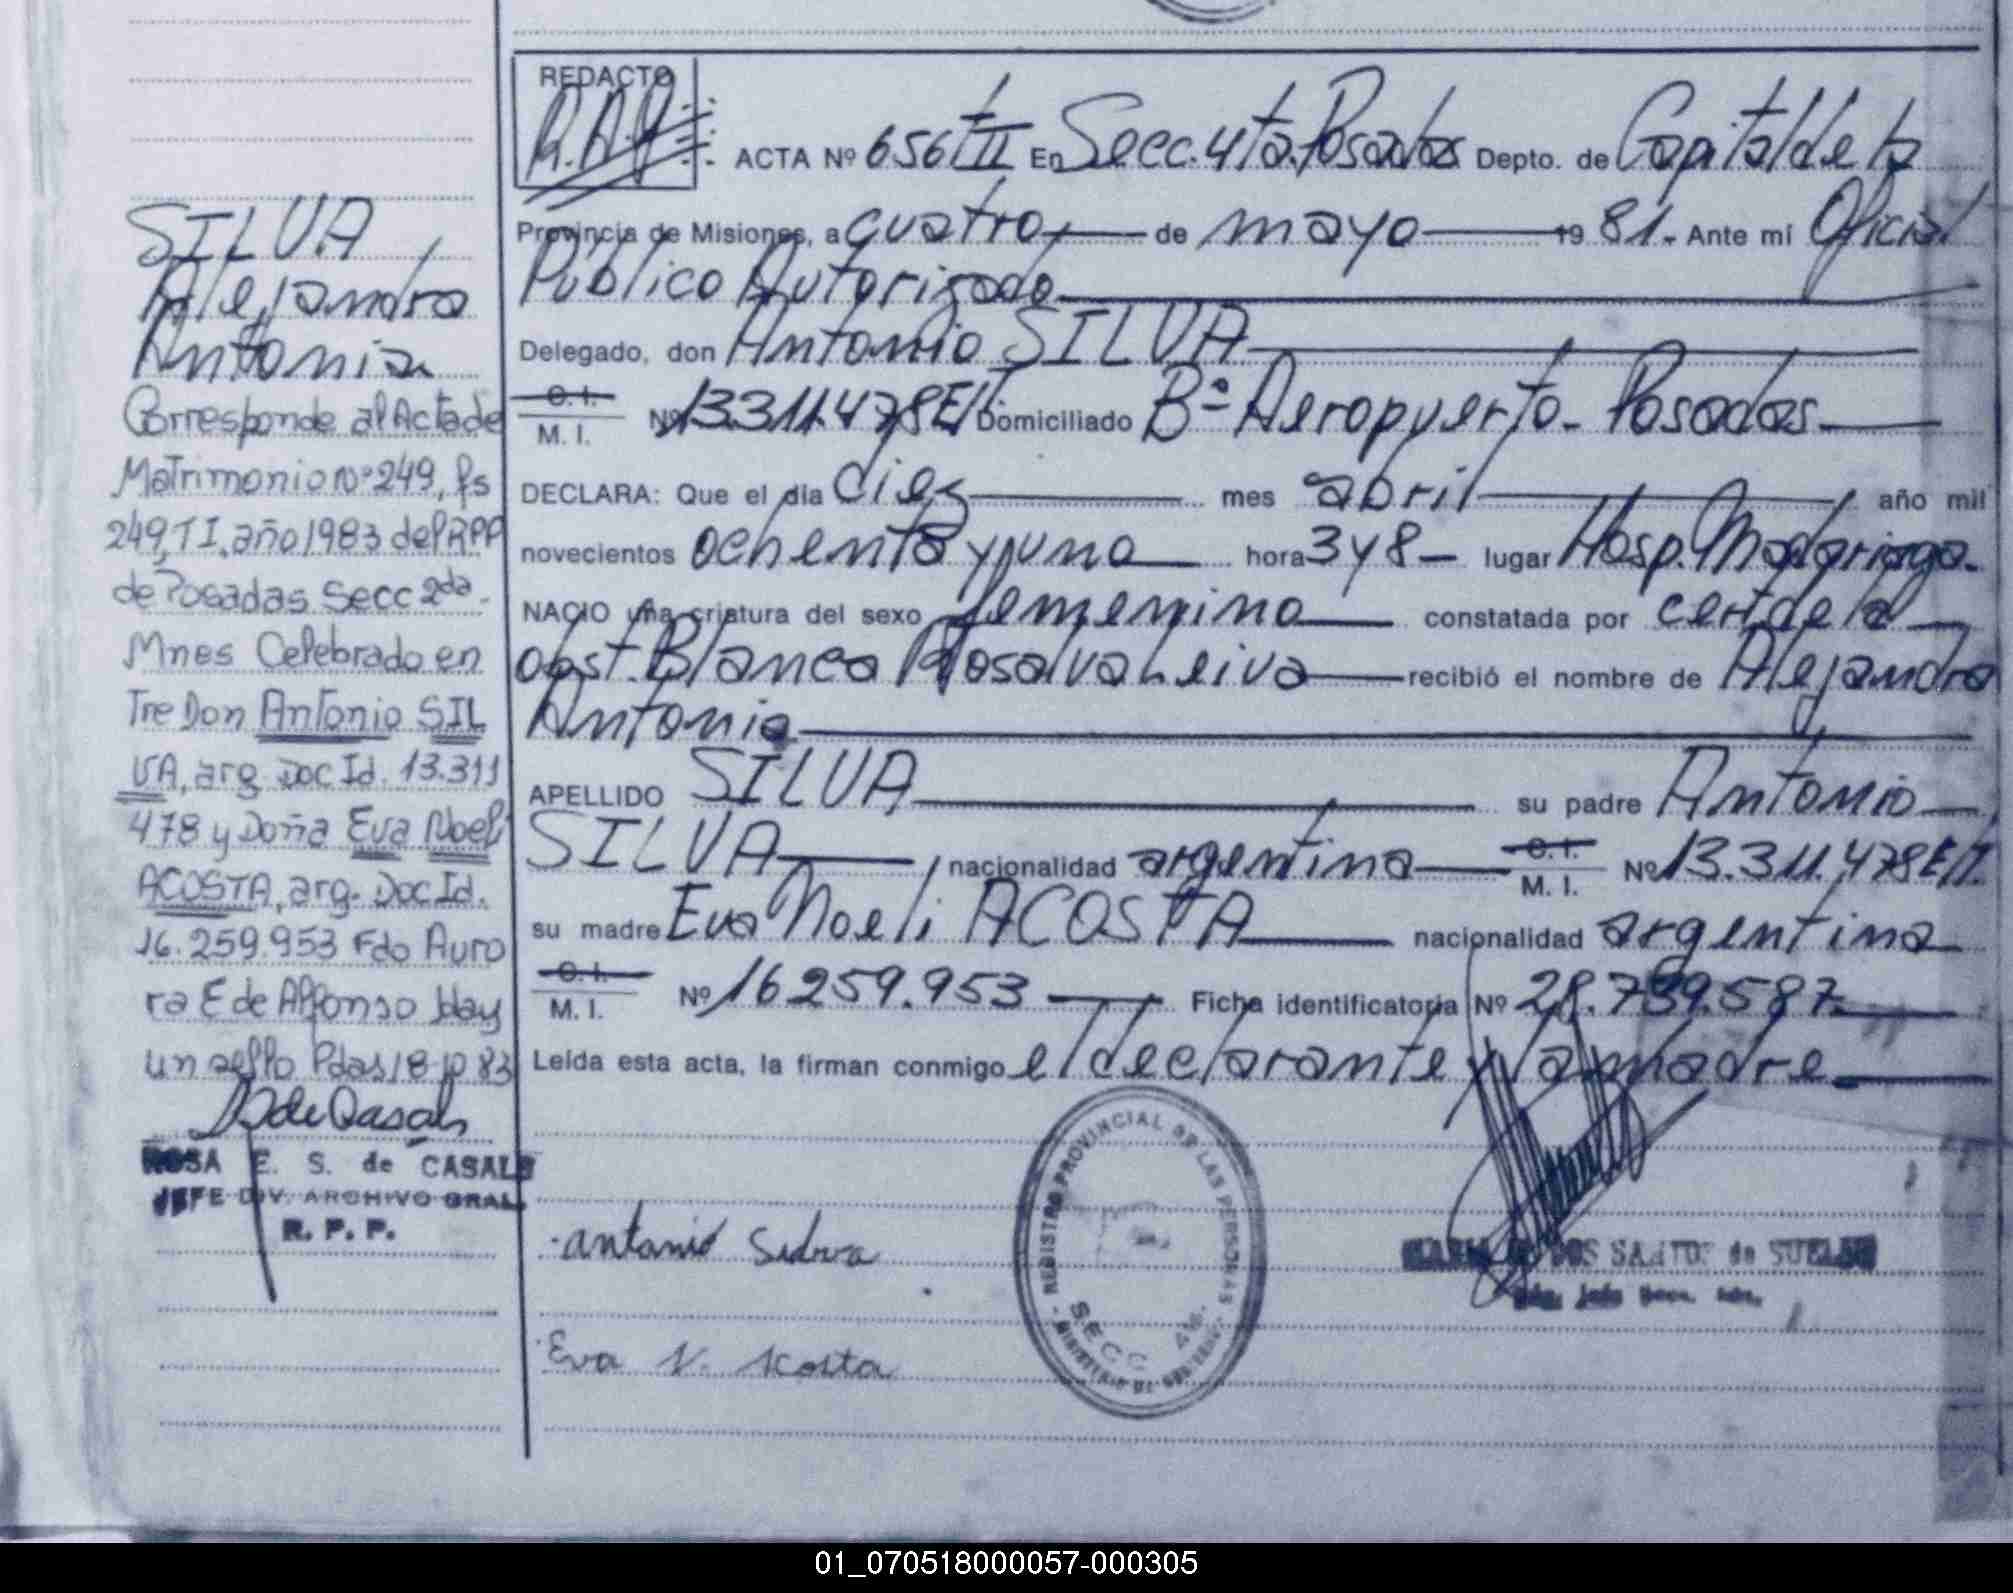 SILVA
Alejandra
Antonia
Corresponde al Acta de
Matrimonio Nº 249, fs
249, T I, año 1983 del RPP
de Posadas Secc 2da.
Mnes Celebrado en
Tre Don Antonio SIL
VA, arg. Doc Id. 13.311
478 y Doña Eva Noeli
ACOSTA, arg. Doc Id.
16.259.953 Fdo Auro
ra E de Alfonso Hay
un sello Pdas 18 10 83
ROSA E. S. de CASALS
JEFE DIV. ARCHIVO GRAL.
R. P. P.
REDACTO
ACTA Nº 656 T II En Secc. 4ta. Posadas Depto. de Capital de la
Provincia de Misiones, a cuatro de mayo 19 81.- Ante mi Oficial
Público Autorizado
Delegado, don Antonio SILVA
C. I.
M. I. Nº 13.311.478 E/T Domiciliado Bº Aeropuerto - Posadas
DECLARA: Que el día diez mes abril año mil
novecientos ochenta y uno hora 3 y 8 lugar Hosp. Madariaga.
NACIO una criatura del sexo femenino constatada por cert de la
obst. Blanca Rosalva Leiva recibió el nombre de Alejandra
Antonia
APELLIDO SILVA su padre Antonio
SILVA, nacionalidad argentina C. I.
M. I. Nº 13.311.478 E/T.
su madre Eva Noeli ACOSTA nacionalidad argentina
C. I.
M. I. Nº 16259.953 Ficha identificatoria Nº 28.739.587
Leída esta acta, la firman conmigo el declarante y la madre
REGISTRO PROVINCIAL DE LAS PERSONAS
SECC 4ta.
MINISTERIO DE GOBIERNO
DOS SANTOS de
antonio Silva
Eva N. Acosta
01_070518000057-000305